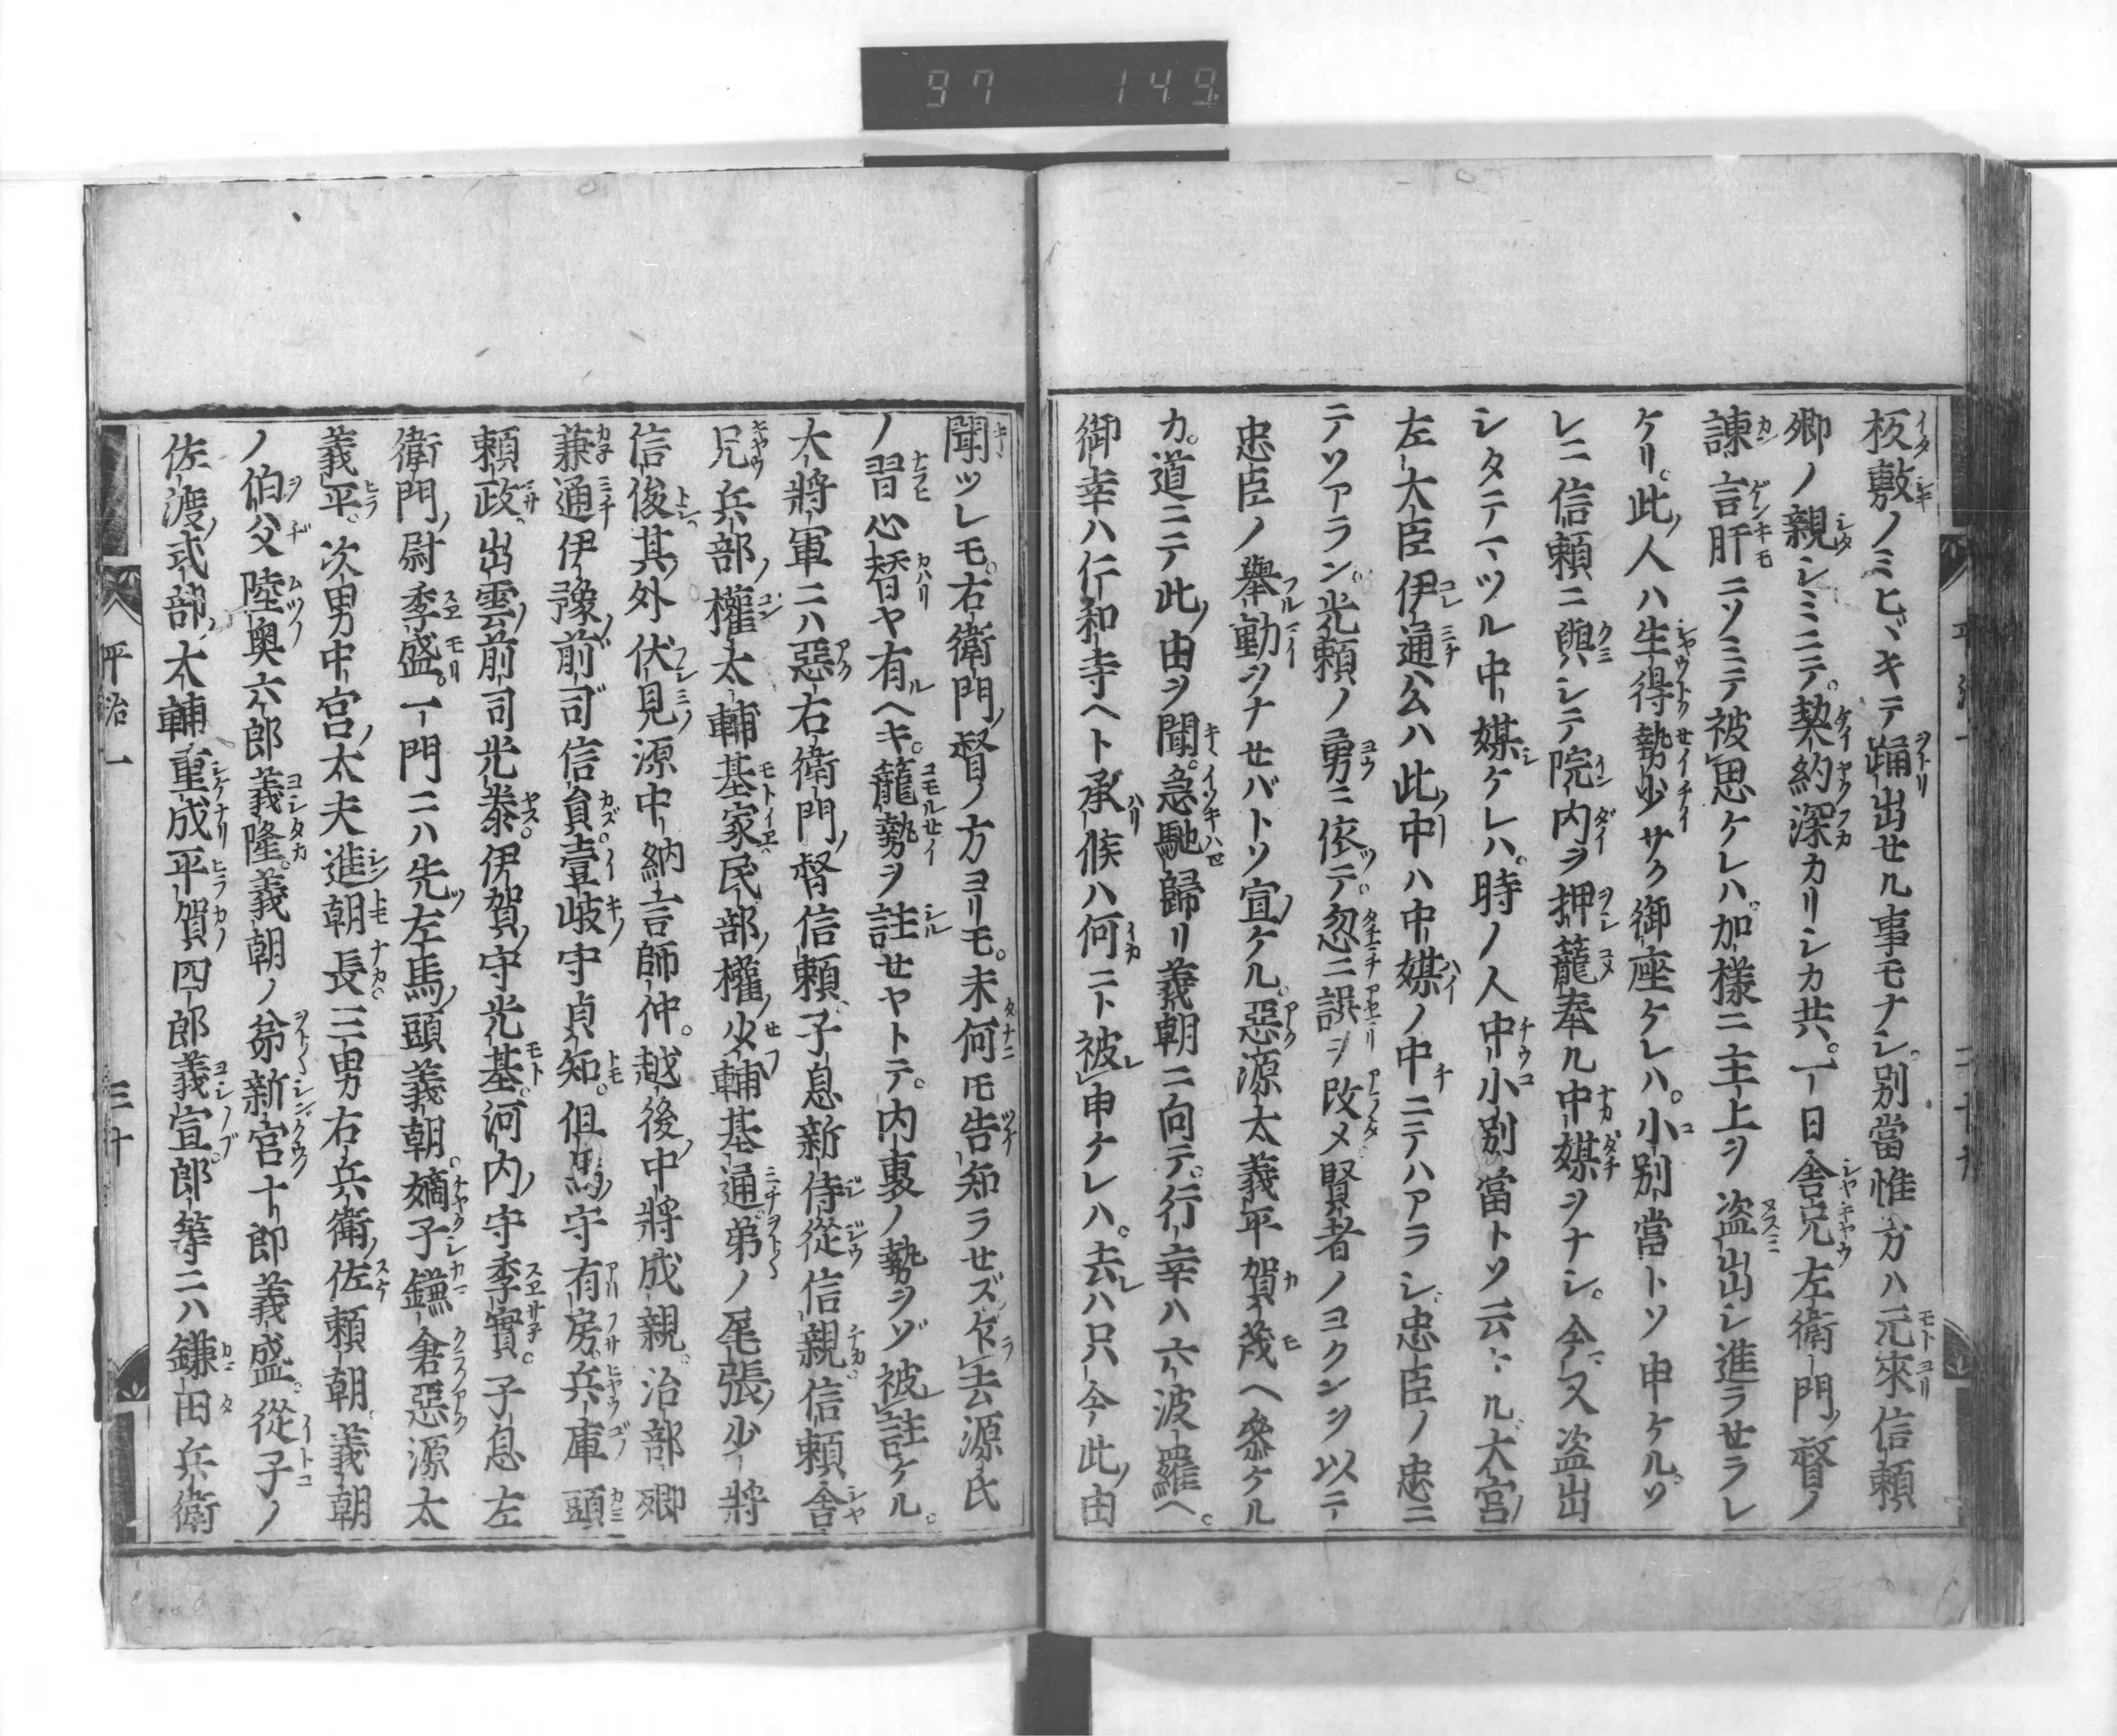 97 149
板敷ノミヒヾキテ踊出せル事モナシ。別當惟方ハ元來信頼
卿ノ親シミニテ。契約深カリシカ共。一日舎兄左衛門ノ督ノ
諫言肝ニソミテ被思ケレハ。加様ニ主上ヲ盗出シ進ラせラレ
ケリ。此ノ人ハ生得勢少サク御座ケレハ。小別當トソ申ケルソ
レニ信頼ニ與シテ院内ヲ押籠奉ル中媒ヲナシ。今又盗出
シタテマツル中媒ケレハ。時ノ人中小別當トソ云ヽル大宮ノ
左大臣伊通公ハ此ノ中ハ中媒ノ中ニテハアラシ忠臣ノ忠ニ
テソアラン。光頼ノ勇ニ依テ。忽ニ誤ヲ改メ賢者ノヨクンヲ以テ
忠臣ノ舉動ヲナせバトソ宣ケル。惡源太義平賀茂ヘ參ケル
カ。道ニテ此ノ由ヲ聞。急馳歸リ義朝ニ向テ。行幸ハ六波羅ヘ。
御幸ハ仁和寺ヘト承候ハ何ニト被申ケレハ。去ハ只今此ノ由
聞ツレ𪜈。右衛門ノ督ノ方ヨリモ。未何𪜈告知ラせズ。去源氏
ノ習心替ヤ有ヘキ。籠勢ヲ註せヤトテ。内裏ノ勢ヲゾ被註ケル。
大將軍ニハ惡右衛門ノ督信頼子息新侍從信親信頼舎
兄兵部ノ權太輔基家民部ノ權少輔基通弟ノ尾張ノ少將
信俊其ノ外伏見ノ源中納言師仲。越後ノ中將成親。治部卿
兼通伊豫ノ前司信員。壹岐ノ守貞知。但馬ノ守有房兵庫ノ頭
頼政出雲ノ前司光泰。伊賀ノ守光基。河内ノ守季實。子息左
衛門ノ尉季盛。一門ニハ先左馬ノ頭義朝。嫡子鎌倉惡源太
義平。次男中宮ノ太夫進朝長三男右兵衛ノ佐頼朝義朝
ノ伯父陸奥六郎義隆。義朝ノ弟新宮十郎義盛。從子ノ
佐渡ノ式部ノ太輔重成平賀四郎義宣。郎等ニハ鎌田兵衛
平治一
三十